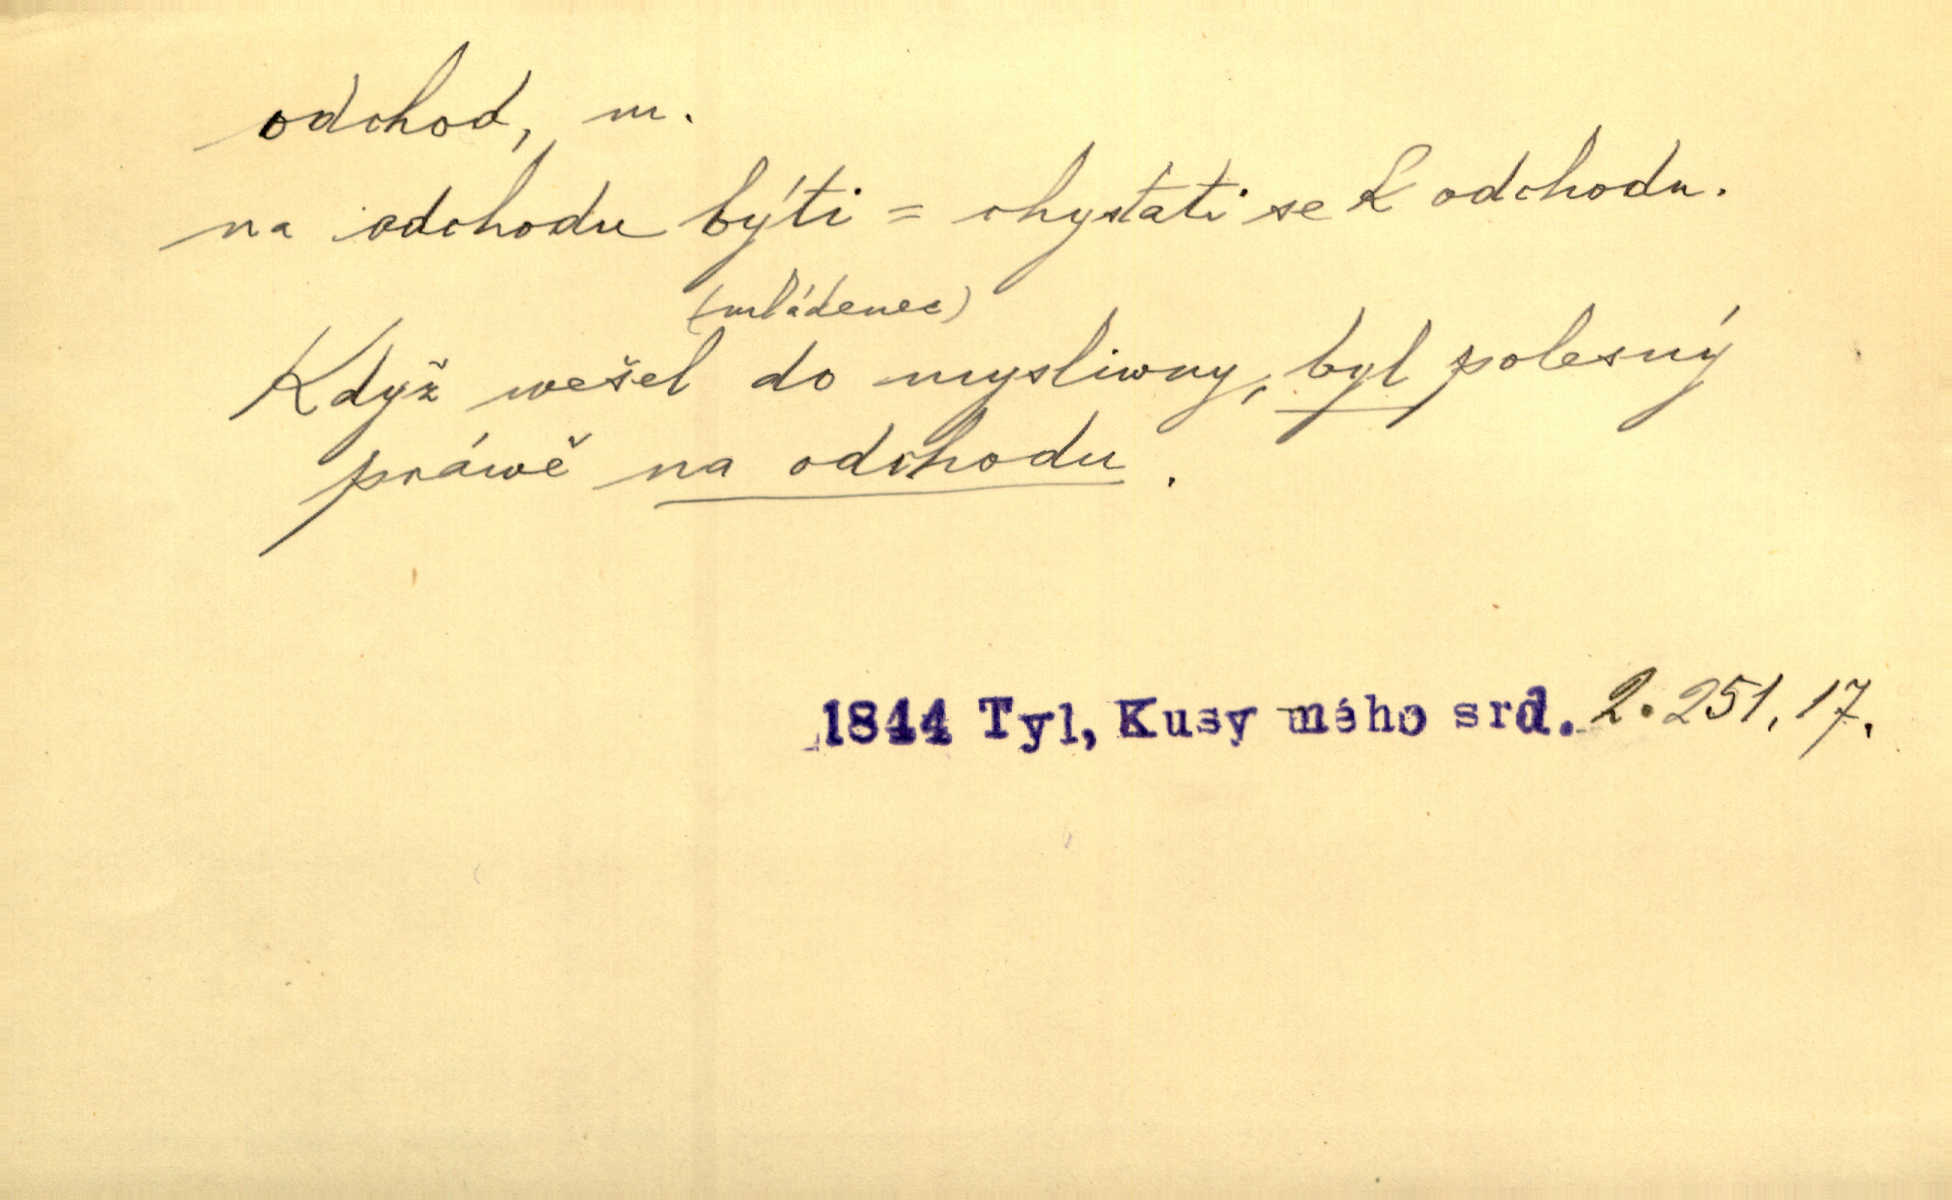 odchod, m.
na odchodu býti = chystati se k odchodu.
(mládenec)
Když wešel do mysliwny, byl polesný
práwě na odchodu.
1844 Tyl, Kusy mého srd. 2. 251, 17.